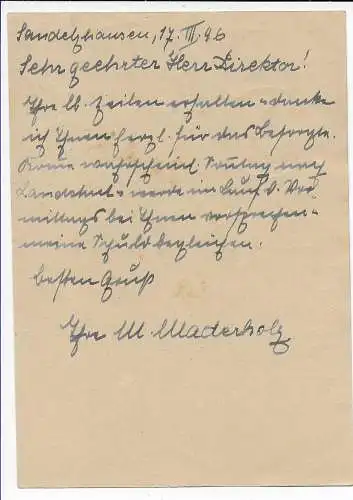 Sandelzhausen, 17. III. 46
Sehr geehrter Herr Direktor!
Ihre lb. Zeilen erhalten u. danke
ich Ihnen herzl. für das Besorgte.
Komme wahrscheinl. Sonntag nach
Landshut u. werde im Lauf d. Vor-
mittags bei Ihnen vorsprechen u.
meine Schuld begleichen.
besten Gruß
Ihre M. Maderholz